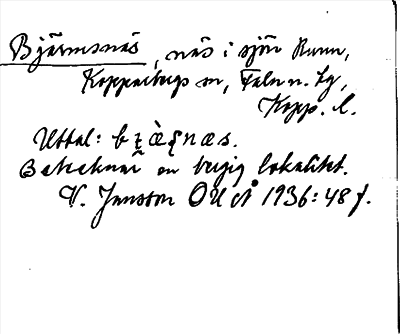 Bjärmsnäs, näs i sjön Runn,
Kopparbergs sn, Falu n. tg,
Kopp. l.
Uttal: bʐæ̀ʂnæs.
Betecknar en bergig lokalitet.
V. Jansson OUÅ 1936: 48 f.